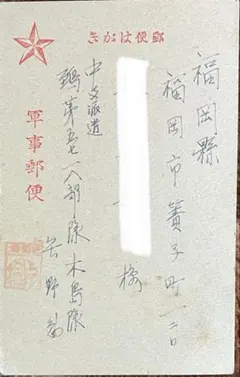 郵便はがき
福岡縣
福岡市簀子町一二〇
様
軍事郵便
中支派遣
鵄第五七一八部隊木島隊
矢野